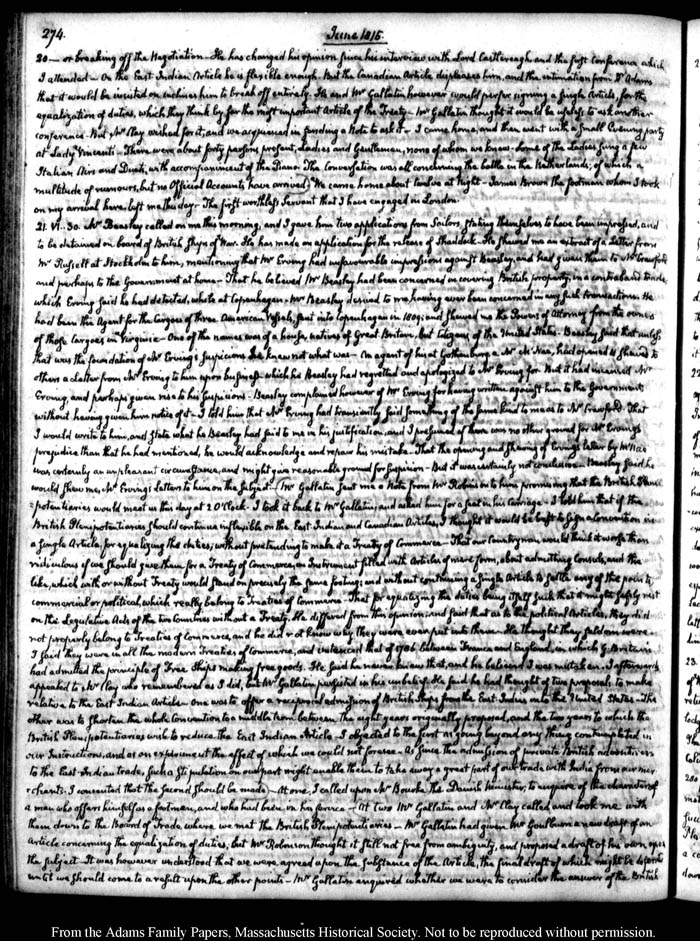 274.
June 1815.
20 — or breaking off the Negotiation — He has changed his opinion since his interview with Lord Castlereagh, and the first Conference which
I attended — On the East Indian Article he is flexible enough. But the Canadian Article displeases him, and the intimation from Dr Adams
that it would be insisted on inclines him to break off entirely. He and Mr Gallatin however would prefer signing a single Article, for the
equalization of duties, which they think by far the most important Article of the Treaty — Mr Gallatin thought it would be useless to ask another
conference. But Mr Clay wished for it, and we acquiesced in sending a Note to ask it — I came home, and then went with a small Evening party
at Lady Vincent's — There were about forty persons present, Ladies and Gentlemen, none of whom we knew. Some of the Ladies sung a few
Italian Airs and Duets, with accompaniment of the Piano. The Conversation was all concerning the battle in the Netherlands, of which a
multitude of rumours, but no Official Accounts have arrived. We came home about twelve at Night — James Brown the footman whom I took
on my arrival here, left me this day — The first worthless Servant that I have engaged in London.
21. VI. 30. Mr Beasley called on me this morning, and I gave him two applications from Sailors, stating themselves to have been impressed, and
to be detained on board of British Ships of War. He has made an application for the release of Shaddock. He shewed me an extract of a Letter from
Mr Russell at Stockholm to him, mentioning that Mr Erving had unfavourable impressions against Beasley, and had given them to Mr Crawford
and perhaps to the Government at home — That he believed Mr Beasley had been concerned in covering British property, in a contraband trade,
which Erving said he had detected, while at Copenhagen — Mr Beasley denied to me having ever been concerned in any such transactions. He
had been the Agent for the Cargoes of three American Vessels, sent into Copenhagen in 1809; and shewed me the Powers of Attorney from the owners
of those Cargoes in Virginia — One of the names was of a house, natives of Great Britain, but Citizens of the United States. Beasley said that unless
that was the foundation of Mr Erving's Suspicions he knew not what was — An agent of his at Gothenburg a Mr Mc Nae, had opened & shewed to
others a Letter from Mr Erving to him upon business which he Beasley had regretted and apologized to Mr Erving for. But it had incensed Mr
Erving, and perhaps given rise to his Suspicions — Beasley complained however of Mr Erving for having written against him to the Government
without having given him notice of it — I told him that Mr Erving had transiently said something of the same kind to me as to Mr Crawford. That
I would write to him, and state what he Beasley had said to me in his justification, and I presumed if there was no other ground for Mr Erving's
prejudice than that he had mentioned, he would acknowledge and repair his mistake. That the opening and shewing of Erving's letter by Mc Nae
was certainly an unpleasant circumstance, and might give reasonable ground for suspicion — But it was certainly not conclusive — Beasley said he
would shew me, Mr Erving's Letters to him on the Subject — Mr Gallatin sent me a Note from Mr Robinson to him promising that the British Pleni=
=potentiaries would meet us this day at 2 O'Clock. I took it back to Mr Gallatin, and asked him for a seat in his Carriage — I told him that if the
British Plenipotentiaries should continue inflexible on the East Indian and Canadian Articles, I thought it would be best to sign a Convention in
a single Article, for equalizing the duties, without pretending to make it a Treaty of Commerce — That our Countrymen, would think it worse than
ridiculous if we should give them for a Treaty of Commerce, an Instrument filled with Articles of mere form, about admitting Consuls, and the
like, which with or without Treaty would stand on precisely the same footing; and without containing a single Article to settle any of the points,
commercial or political, which really belong to Treaties of Commerce — That for equalizing the duties being itself such that it might safely rest
on the Legislative Acts of the two Countries without a Treaty. He differed from this opinion; and said that as to the political Articles, they did
not properly belong to Treaties of Commerce, and he did not know why they were ever put into them. He thought they seldom were —
I said they were in all the modern Treaties of Commerce, and instanced that of 1786 between France and England, in which G. Britain
had admitted the principle of Free Ships making free goods. He said he never knew that, and he believed I was mistaken. I afterwards
appealed to Mr Clay who remembered as I did, but Mr Gallatin persisted in his unbelief. He said he had thought of two proposals, to make
relative to the East Indian Article — One was to offer a reciprocal admission of British Ships from the East Indies into the United States — The
other was to shorten the whole Convention to a middle term between the eight years originally proposed, and the two years to which the
British Plenipotentiaries wish to reduce the East Indian Article. I objected to the first as going beyond any thing contemplated in
our Instructions, and as an experiment the effect of which we could not foresee — As since the admission of private British adventurers
to the East-Indian trade, such a stipulation on our part might enable them to take away a great part of our trade with India from our mer
=chants. I consented that the second should be made — At one, I called upon Mr Bourke the Danish Minister, to enquire of the character of
a man who offers himself as a footman, and who had been in his service — At two Mr Gallatin and Mr Clay called and took me with
them down to the Board of Trade, where we met the British Plenipotentiaries — Mr Gallatin had given Mr Goulburn a new draft of an
Article concerning the equalization of duties, but Mr Robinson thought it still not free from ambiguity, and proposed a draft of his own, upon
the subject. It was however understood that we were agreed upon the substance of the Article, the final draft of which might be deferred
until we should come to a result upon the other points — Mr Gallatin enquired whether we were to consider the answer of the British
From the Adams Family Papers, Massachusetts Historical Society. Not to be reproduced without permission.